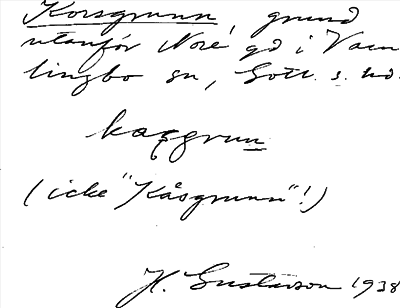 Korsgrunn, grund
utanför Nore gd i Vam-
lingbo sn, Gotl. s. hd.
kaꞩgrunn
(icke "Kåsgrunn"!)
H. Gustavson 1938